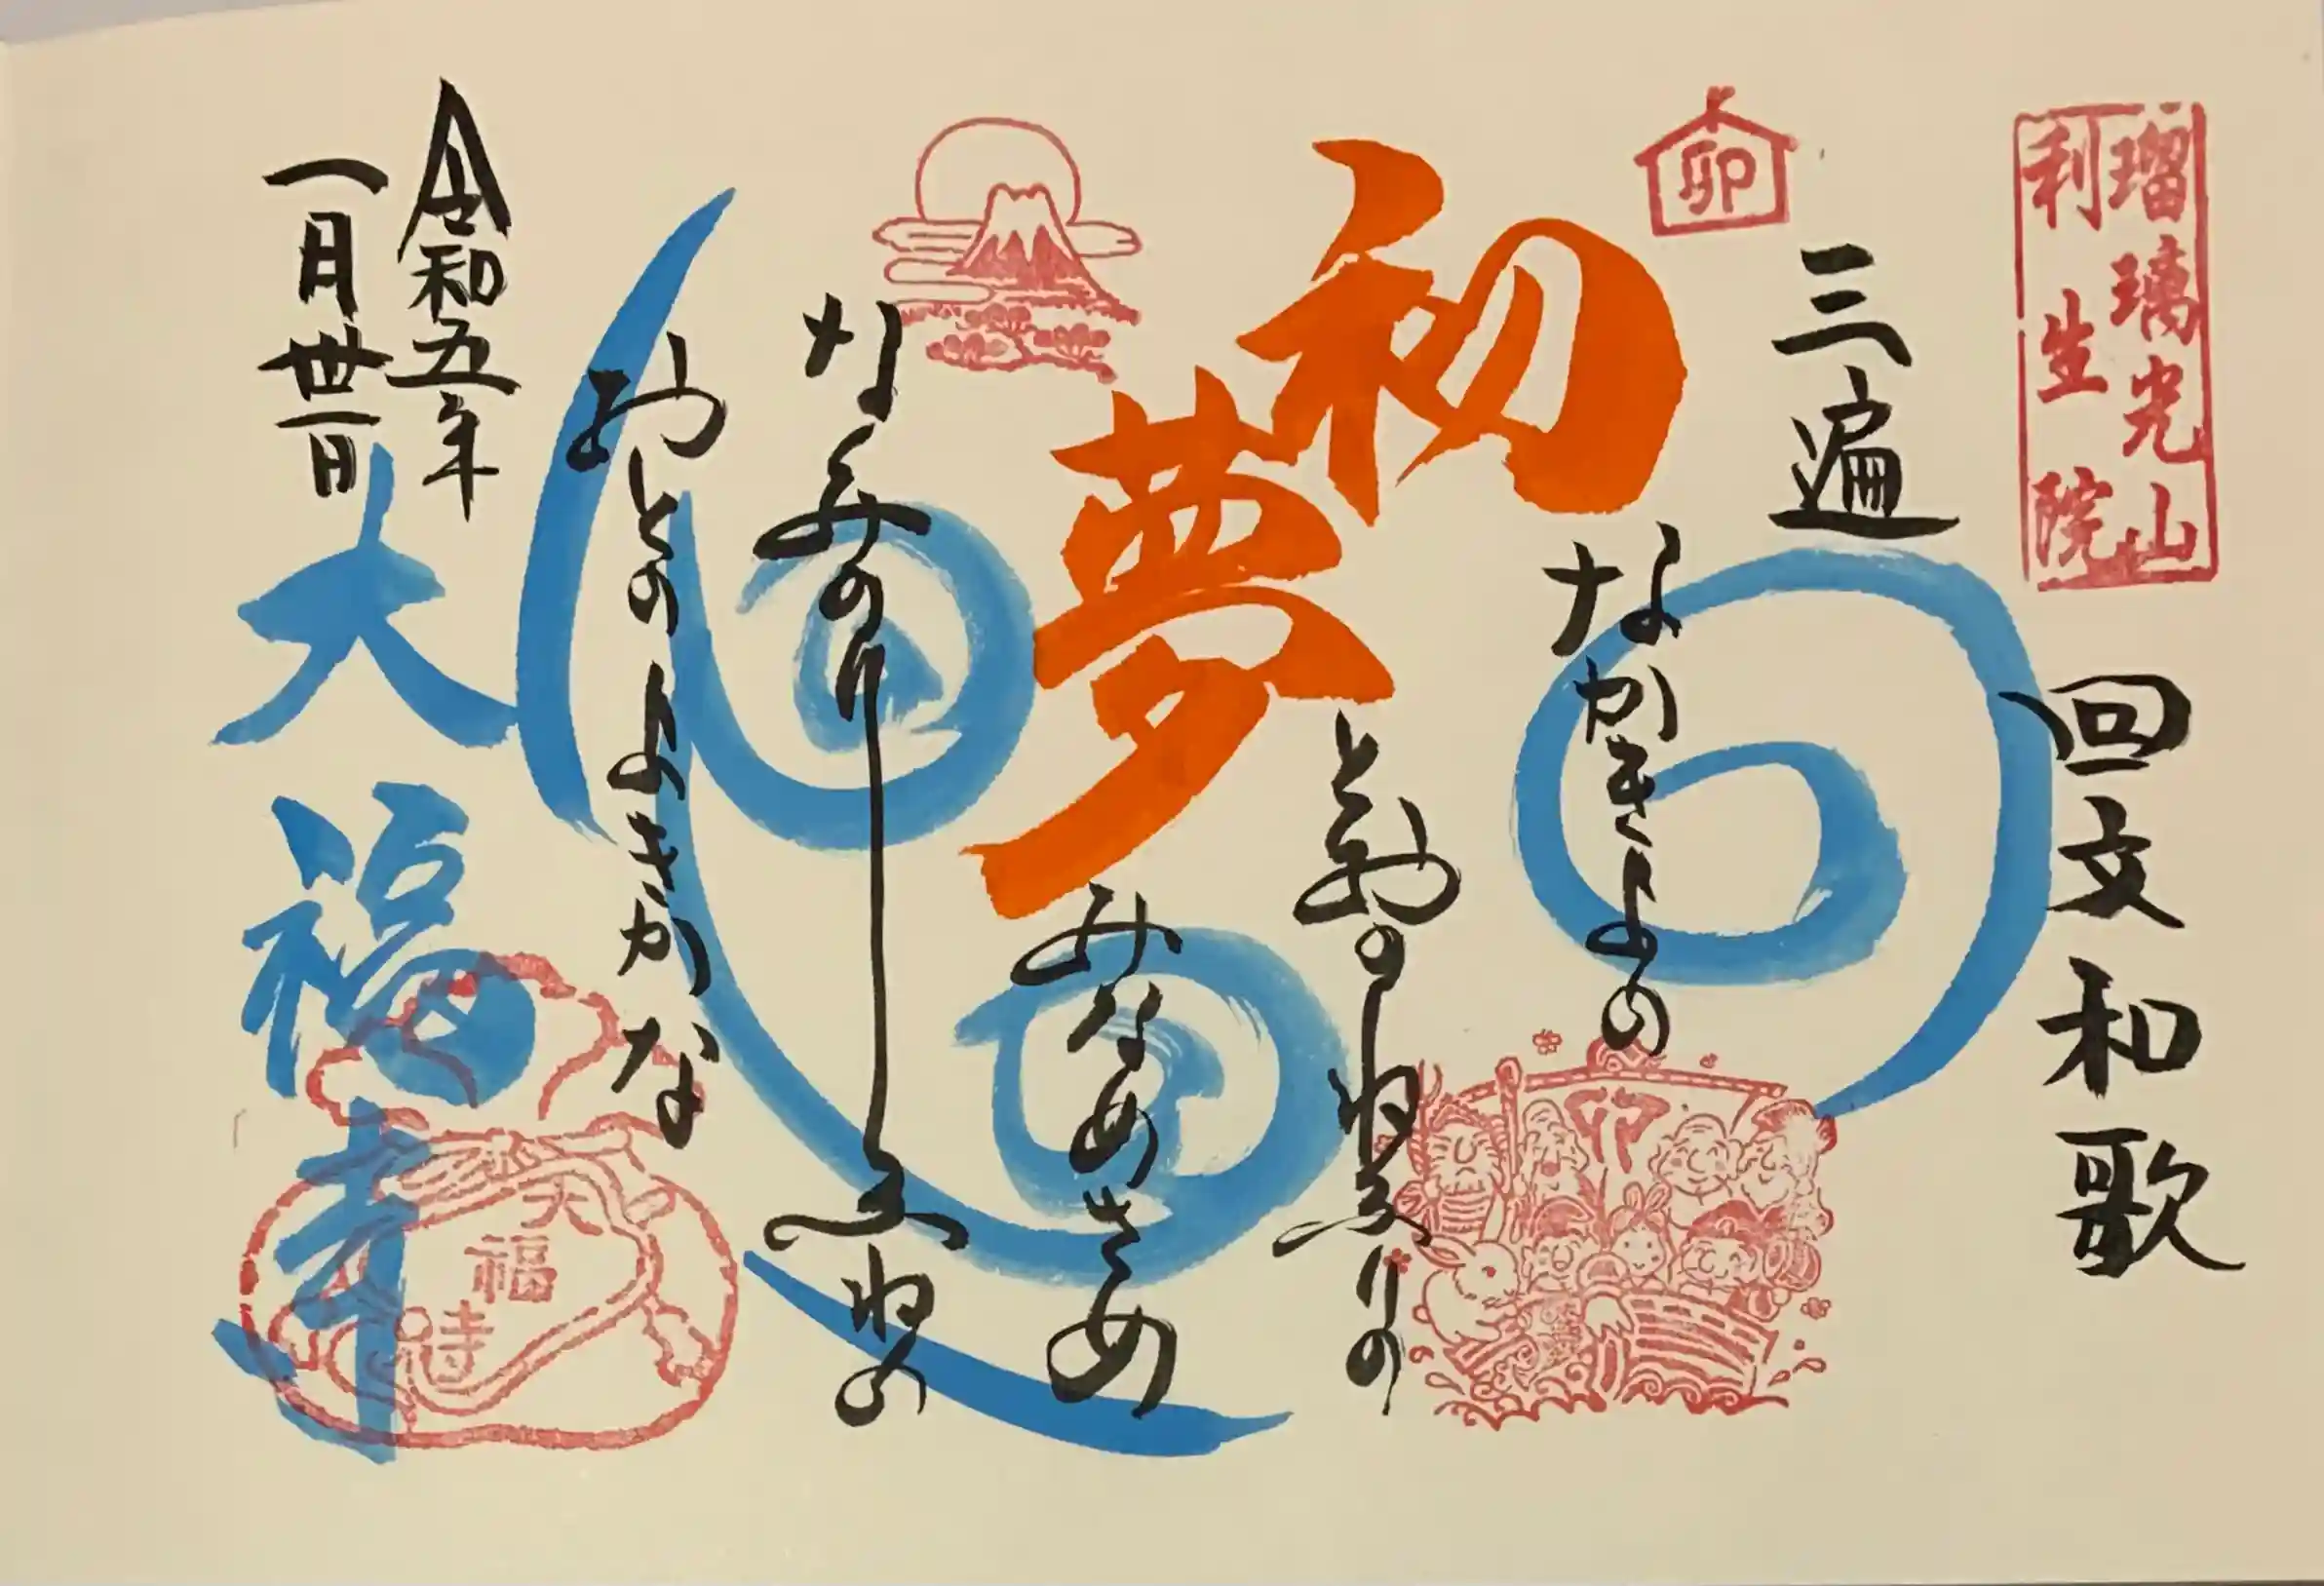 瑠璃光山
利生院
回文和歌
三遍
卯
なかきよの
とおのねふりの
みなめさめ
なみのりふねの
おとのよきかな
初夢
卯
令和五年
一月卅一日
大福寺
大福寺